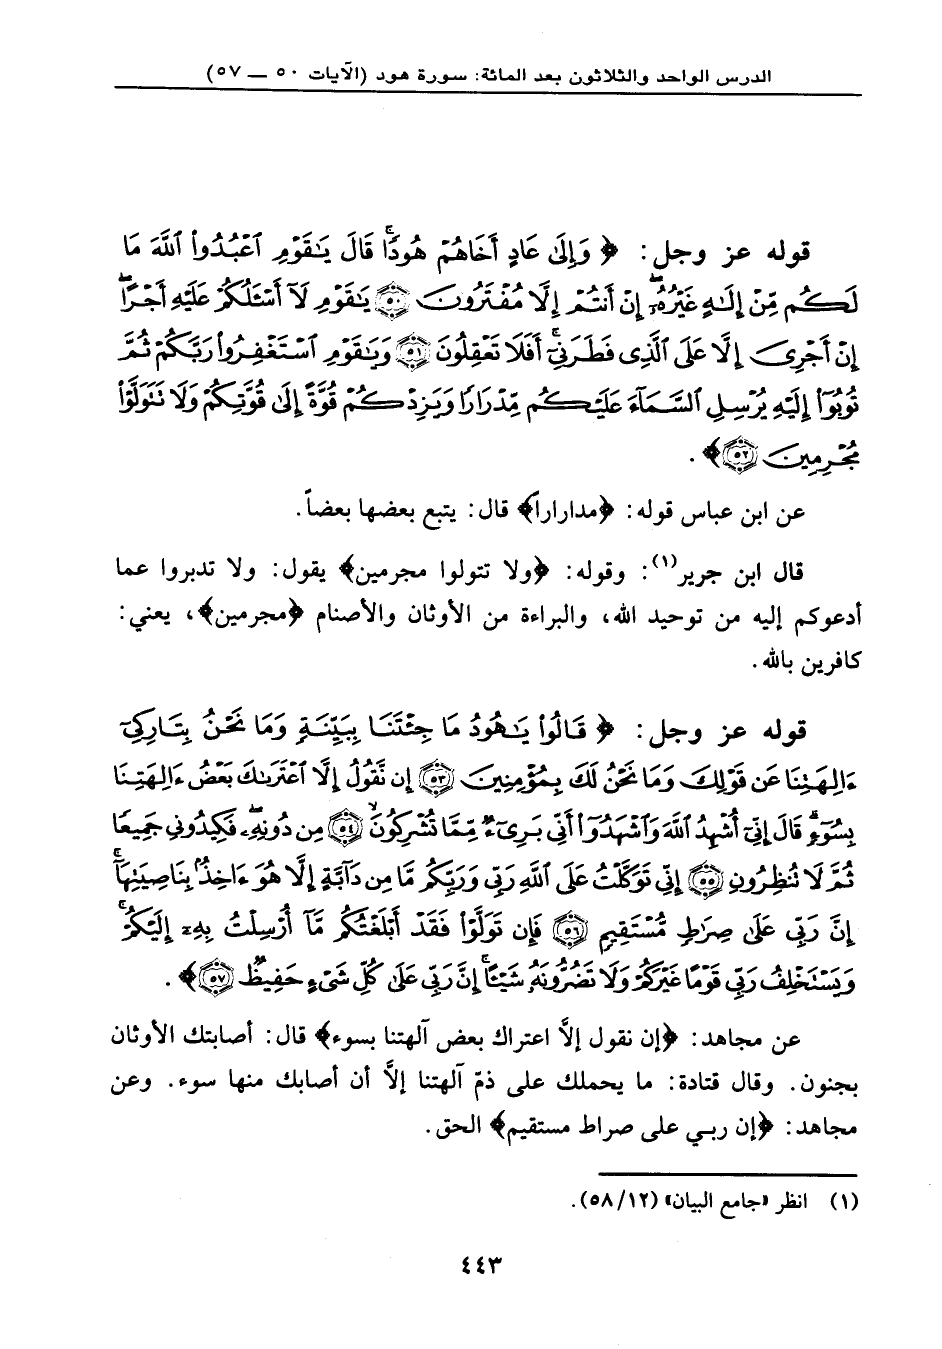 الدرس الواحد والثلاثون بعد المائة: سورة هود (الآيات ٥٠ — ٥٧)
قوله عز وجل: ﴿ وَإِلَىٰ عَادٍ أَخَاهُمْ هُودًا ۚ قَالَ يَٰقَوْمِ ٱعْبُدُوا۟ ٱللَّهَ مَا
لَكُم مِّنْ إِلَٰهٍ غَيْرُهُۥٓ ۖ إِنْ أَنتُمْ إِلَّا مُفْتَرُونَ ﴿٥٠﴾ يَٰقَوْمِ لَآ أَسْـَٔلُكُمْ عَلَيْهِ أَجْرًا ۖ
إِنْ أَجْرِىَ إِلَّا عَلَى ٱلَّذِى فَطَرَنِىٓ ۚ أَفَلَا تَعْقِلُونَ ﴿٥١﴾ وَيَٰقَوْمِ ٱسْتَغْفِرُوا۟ رَبَّكُمْ ثُمَّ
تُوبُوٓا۟ إِلَيْهِ يُرْسِلِ ٱلسَّمَآءَ عَلَيْكُم مِّدْرَارًا وَيَزِدْكُمْ قُوَّةً إِلَىٰ قُوَّتِكُمْ وَلَا تَتَوَلَّوْا۟
مُجْرِمِينَ ﴿٥٢﴾ ﴾.
عن ابن عباس قوله: ﴿مدارراراً﴾ قال: يتبع بعضها بعضاً.
قال ابن جرير(١): وقوله: ﴿ولا تتولوا مجرمين﴾ يقول: ولا تدبروا عما
أدعوكم إليه من توحيد الله، والبراءة من الأوثان والأصنام ﴿مجرمين﴾، يعني:
كافرين بالله.
قوله عز وجل: ﴿ قَالُوا۟ يَٰهُودُ مَا جِئْتَنَا بِبَيِّنَةٍ وَمَا نَحْنُ بِتَارِكِىٓ
ءَالِهَتِنَا عَن قَوْلِكَ وَمَا نَحْنُ لَكَ بِمُؤْمِنِينَ ﴿٥٣﴾ إِن نَّقُولُ إِلَّا ٱعْتَرَىٰكَ بَعْضُ ءَالِهَتِنَا
بِسُوٓءٍ ۗ قَالَ إِنِّىٓ أُشْهِدُ ٱللَّهَ وَٱشْهَدُوٓا۟ أَنِّى بَرِىٓءٌ مِّمَّا تُشْرِكُونَ ﴿٥٤﴾ مِن دُونِهِۦ ۖ فَكِيدُونِى جَمِيعًا
ثُمَّ لَا تُنظِرُونِ ﴿٥٥﴾ إِنِّى تَوَكَّلْتُ عَلَى ٱللَّهِ رَبِّى وَرَبِّكُم ۚ مَّا مِن دَآبَّةٍ إِلَّا هُوَ ءَاخِذٌۢ بِنَاصِيَتِهَآ ۚ
إِنَّ رَبِّى عَلَىٰ صِرَٰطٍ مُّسْتَقِيمٍ ﴿٥٦﴾ فَإِن تَوَلَّوْا۟ فَقَدْ أَبْلَغْتُكُم مَّآ أُرْسِلْتُ بِهِۦٓ إِلَيْكُمْ ۚ
وَيَسْتَخْلِفُ رَبِّى قَوْمًا غَيْرَكُمْ وَلَا تَضُرُّونَهُۥ شَيْـًٔا ۚ إِنَّ رَبِّى عَلَىٰ كُلِّ شَىْءٍ حَفِيظٌ ﴿٥٧﴾ ﴾.
عن مجاهد: ﴿إن نقول إلاَّ اعتراك بعض آلهتنا بسوء﴾ قال: أصابتك الأوثان
بجنون. وقال قتادة: ما يحملك على ذمّ آلهتنا إلاَّ أن أصابك منها سوء. وعن
مجاهد: ﴿إن ربي على صراط مستقيم﴾ الحق.
(١) انظر «جامع البيان» (٥٨/١٢).
٤٤٣